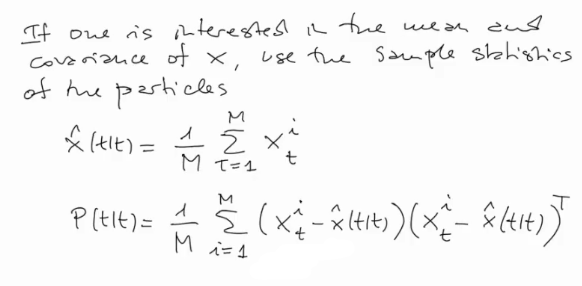 If one is interested in the mean and
covariance of x, use the sample statistics
of the particles
x̂(t|t) = 1/M Σ_{T=1}^{M} x_t^i
P(t|t) = 1/M Σ_{i=1}^{M} (x_t^i - x̂(t|t))(x_t^i - x̂(t|t))^T